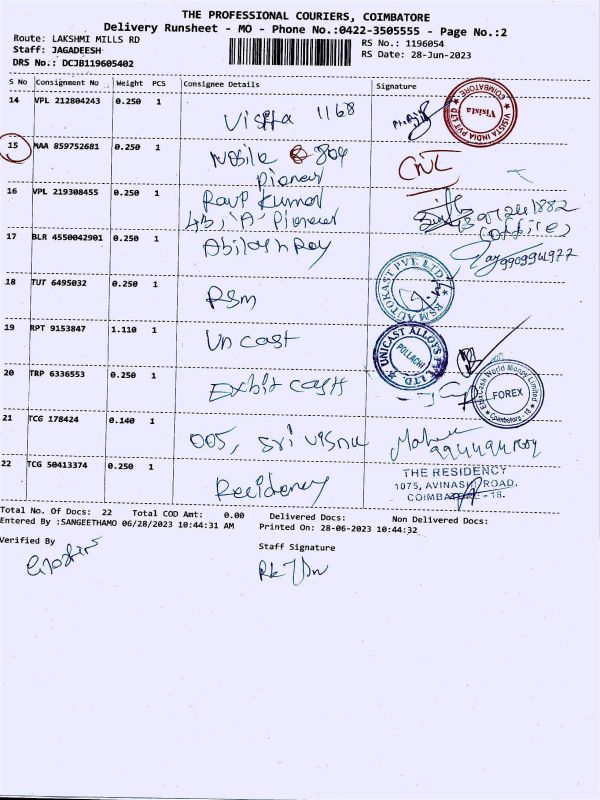 THE PROFESSIONAL COURIERS, COIMBATORE
Delivery Runsheet - MO - Phone No.:0422-3505555 - Page No.:2
Route: LAKSHMI MILLS RD
RS No.: 1196054
Staff: JAGADEESH
RS Date: 28-Jun-2023
DRS No.: DCJB119605402
S No Consignment No Weight PCS Consignee Details Signature
14 VPL 212804243 0.250 1 Vistta 1168
VISISTA INDIA PVT LTD COIMBATORE
Visista
15 MAA 859752681 0.250 1 804
Pioneer
16 VPL 219308455 0.250 1 Kumar
43, 'A' Pioneer
(office)
17 BLR 4550042901 0.250 1 Abilash Roy
18 TUT 6495032 0.250 1 RSM
RSM AUTOKAST PVT. LTD.
19 RPT 9153847 1.110 1 Unicast
UNICAST ALLOYS PVT. LTD.
POLLACHI
20 TRP 6336553 0.250 1 Exbit cash
World Money Limited
FOREX
Coimbatore - 18
21 TCG 178424 0.140 1 005, Sri Visnu
22 TCG 50413374 0.250 1 Recidency
THE RESIDENCY
1075, AVINASHI ROAD,
COIMBATORE - 18.
Total No. Of Docs: 22 Total COD Amt: 0.00 Delivered Docs: Non Delivered Docs:
Entered By :SANGEETHAMO 06/28/2023 10:44:31 AM Printed On: 28-06-2023 10:44:32
Verified By
Staff Signature